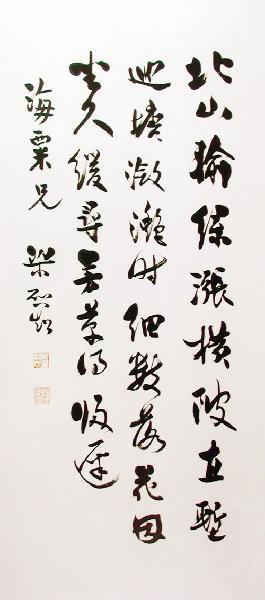 北山輸綠漲橫陂直塹
迴塘瀲灩時細數落花因
坐久緩尋芳草得歸遲
海粟兄 梁啟超